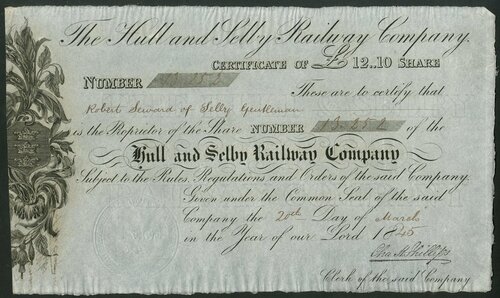 The Hull and Selby Railway Company.
CERTIFICATE OF £12..10 SHARE
NUMBER 13252
These are to certify that
Robert Seward of Selby Gentleman
is the Proprietor of the Share NUMBER 13252 of the
Hull and Selby Railway Company
Subject to the Rules, Regulations and Orders of the said Company.
Given under the Common Seal of the said
Company the 20th Day of March
in the Year of our Lord 1845
Cha A. Phillips
Clerk of the said Company